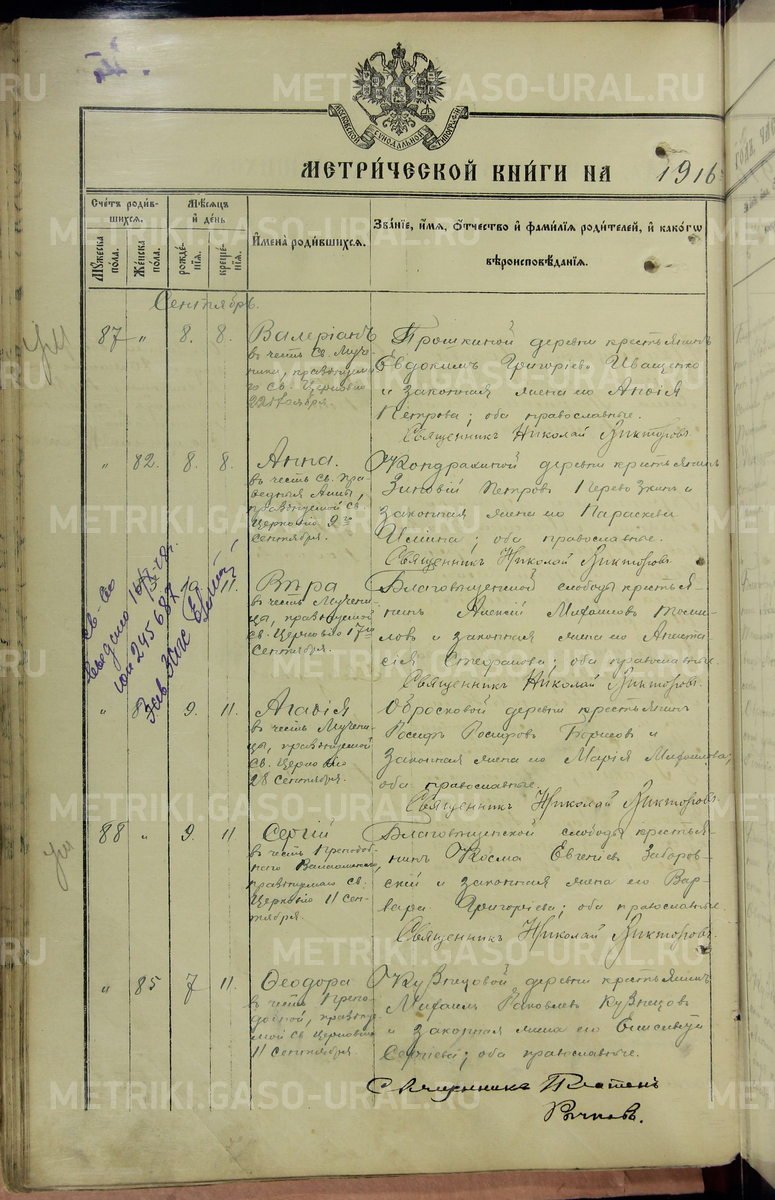 МОСКОВСКОЙ СѴНОДАЛЬНОЙ ТИПОГРАФІИ
МЕТРИ́ЧЕСКОЙ КНИ́ГИ НА 1916
Сче́тъ роди́в-
шихся.
Мѣ́сяцъ
и҆ де́нь
И҆мена̀ роди́вшихся.
Зва́нїе, и҆́мя, ѻ҆́тчество и҆ фами́лїя роди́телей, и҆ како́гѡ
вѣроисповѣ́данїя.
Мꙋ́жеска
по́ла.
Же́нска
по́ла.
рожде́-
нїя.
креще́-
нїя.
Сентябрь.
87 " 8. 8. Валеріанъ
въ честь Св. Муче-
ника, празднуем.
Св. Церковію
22 Ноября.
Прошкиной деревни крестьянинъ
Евдокимъ Григоріевъ Иващенко
и законная жена его Агаѳія
Петрова; оба православные.
Священникъ Николай Викторовъ.
" 82. 8. 8. Анна.
въ честь Св. Пра-
ведныя Анны,
празднуемой Св.
Церковію 9го
Сентября.
Кондрахиной деревни крестьянинъ
Зиновій Петровъ и
законная жена его Параскева
Ильина; оба православные.
Священникъ Николай Викторовъ.
11. Вѣра
въ честь Мучени-
цы, празднуемой
Св. Церковію 17го
Сентября.
Благовѣщенской слободы крестья-
нинъ Алексій Михаиловъ Томи-
ловъ и законная жена его Анаста-
сія Стефанова; оба православные.
Священникъ Николай Викторовъ.
" 9. 11. Агаѳія
въ честь Мучени-
цы, празднуемой
Св. Церковію
28 Сентября.
Обросковой деревни крестьянинъ
Іосифъ Іосифовъ Борисовъ и
законная жена его Марія Михаилова;
оба православные.
Священникъ Николай Викторовъ.
88 " 9. 11 Сергій
въ честь Преподоб-
наго Валаамскаго,
празднуемаго Св.
Церковію 11 Сен-
тября.
Благовѣщенской слободы крестья-
нинъ Косма Евгеніевъ Заборов-
скій и законная жена его Вар-
вара Григоріева; оба православные.
Священникъ Николай Викторовъ.
" 85 7 11. Ѳеодора
въ честь Препо-
добной, праздну-
емой Св. Церковію
11 Сентября.
Кузнецовой деревни крестьянинъ
Михаилъ Яковлевъ Кузнецовъ
и законная жена его
Сергіева; оба православные.
Священникъ Платонъ
Рычковъ.
METRIKI.GASO-URAL.RU